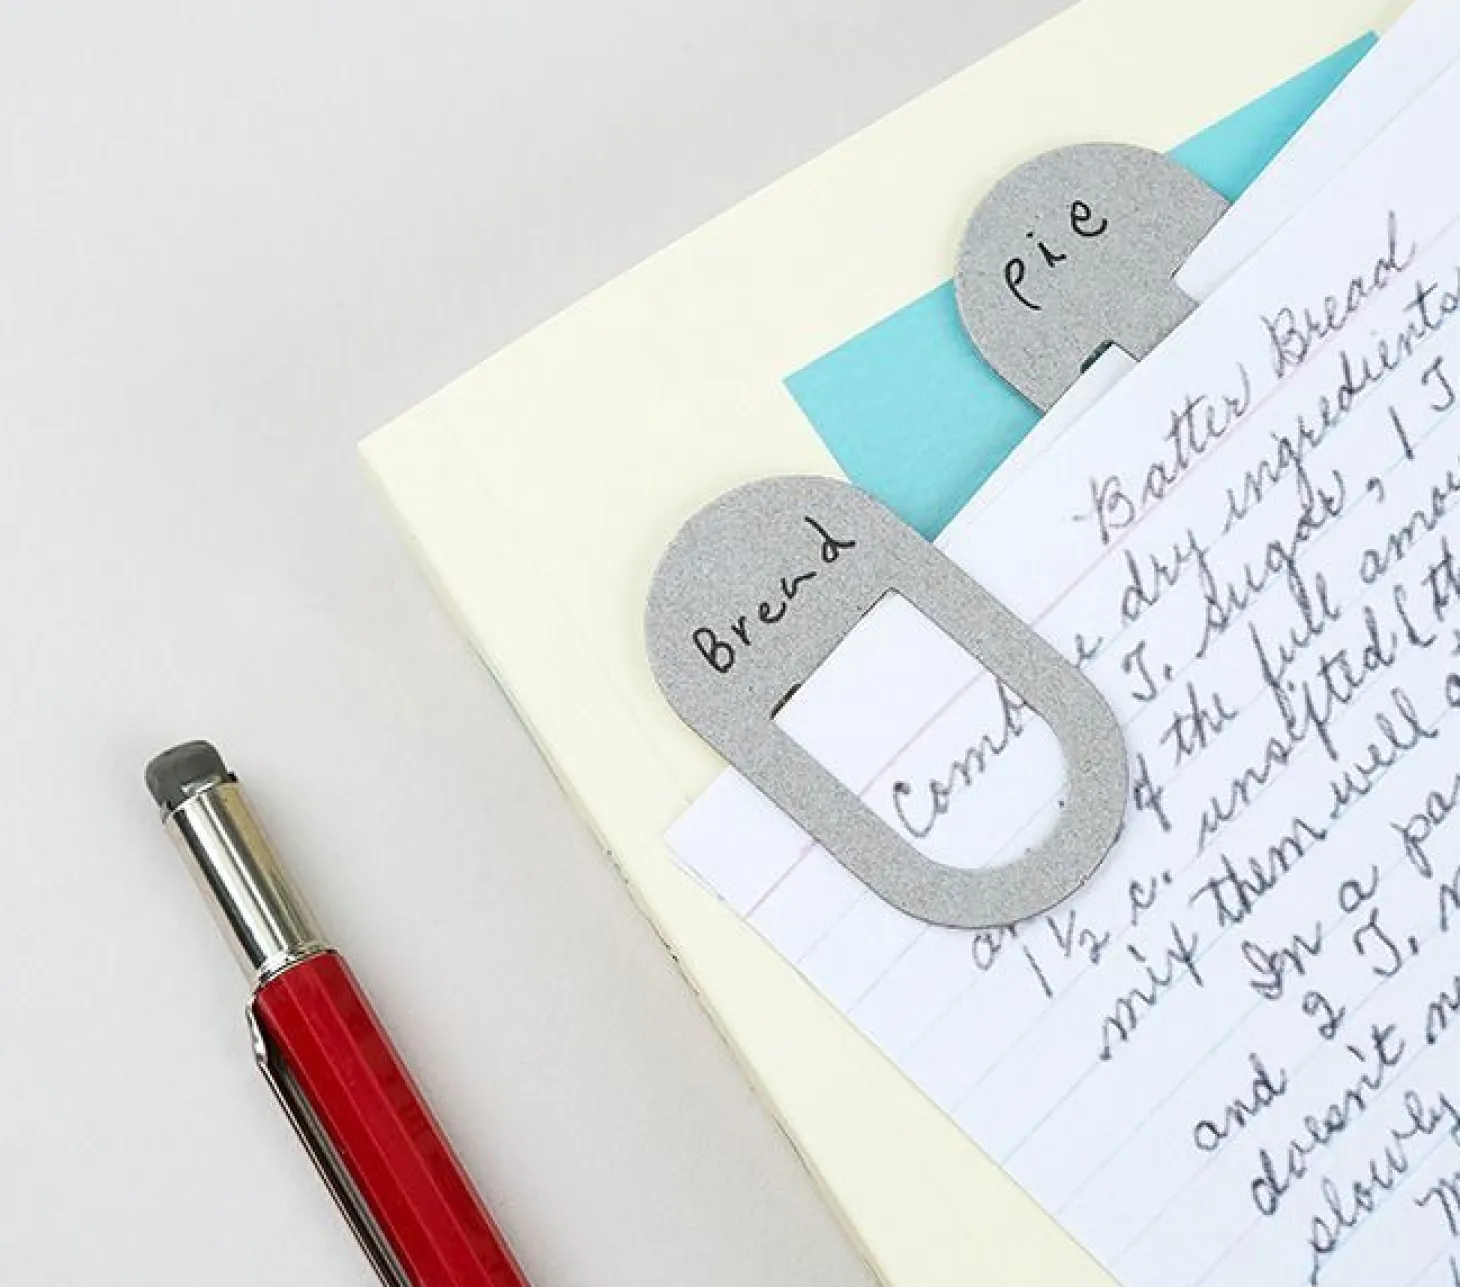 pie
Bread
Batter Bread
Comb e dry ingredients
T. sugar, 1 T
of the full amou
1 1/2 c. unsifted (th
mix them well a
In a pa
and 2 T.
doesn't
slowly